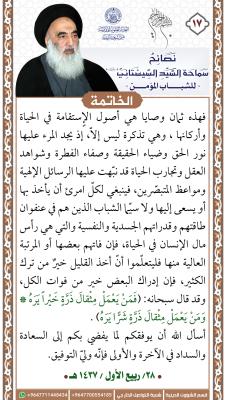 ١٧
نصائح
سماحة السيد السيستاني
للشباب المؤمن
الخاتمة
فهذه ثمان وصايا هي أصول الإستقامة في الحياة
وأركانها ، وهي تذكرة ليس إلا، إذ يجد المرء عليها
نور الحق وضياء الحقيقة وصفاء الفطرة وشواهد
العقل وتجارب الحياة قد نبهت عليها الرسائل الإلهية
ومواعظ المتبصرين، فينبغي لكل امرئ أن يأخذ بها
أو يسعى إليها ولا سيما الشباب الذين هم في عنفوان
طاقتهم وقدراتهم الجسدية والنفسية والتي هي رأس
مال الإنسان في الحياة، فإن فاتهم بعضها أو المرتبة
العالية منها فليتعلموا أن أخذ القليل خير من ترك
الكثير، فإن إدراك البعض خير من فوات الكل،
وقد قال سبحانه: ( فَمَنْ يَعْمَلْ مِثْقَالَ ذَرَّةٍ خَيْراً يَرَهُ *
وَمَنْ يَعْمَلْ مِثْقَالَ ذَرَّةٍ شَرّاً يَرَهُ ) .
أسأل الله أن يوفقكم لما يفضي بكم إلى السعادة
والسداد في الآخرة والأولى فإنه ولي التوفيق.
٢٨/ ربيع الأول / ١٤٣٧ هـ
قسم الشؤون الدينية
شعبة التواصل الخارجي
+9647700554185
+9647711448434